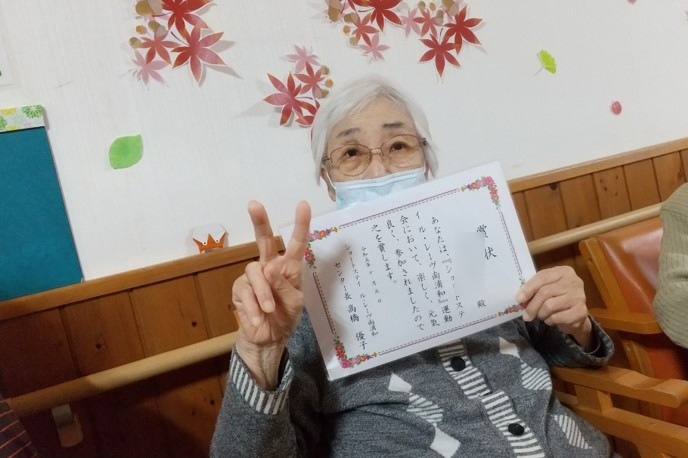 賞状
殿
あなたは、『ショートステ
イル・レーヴ南浦和』運動
会において、楽しく、元気
良く、参加されましたので
之を賞します。
ショートステイ ル・レーヴ南浦和
センター長 高橋 優子